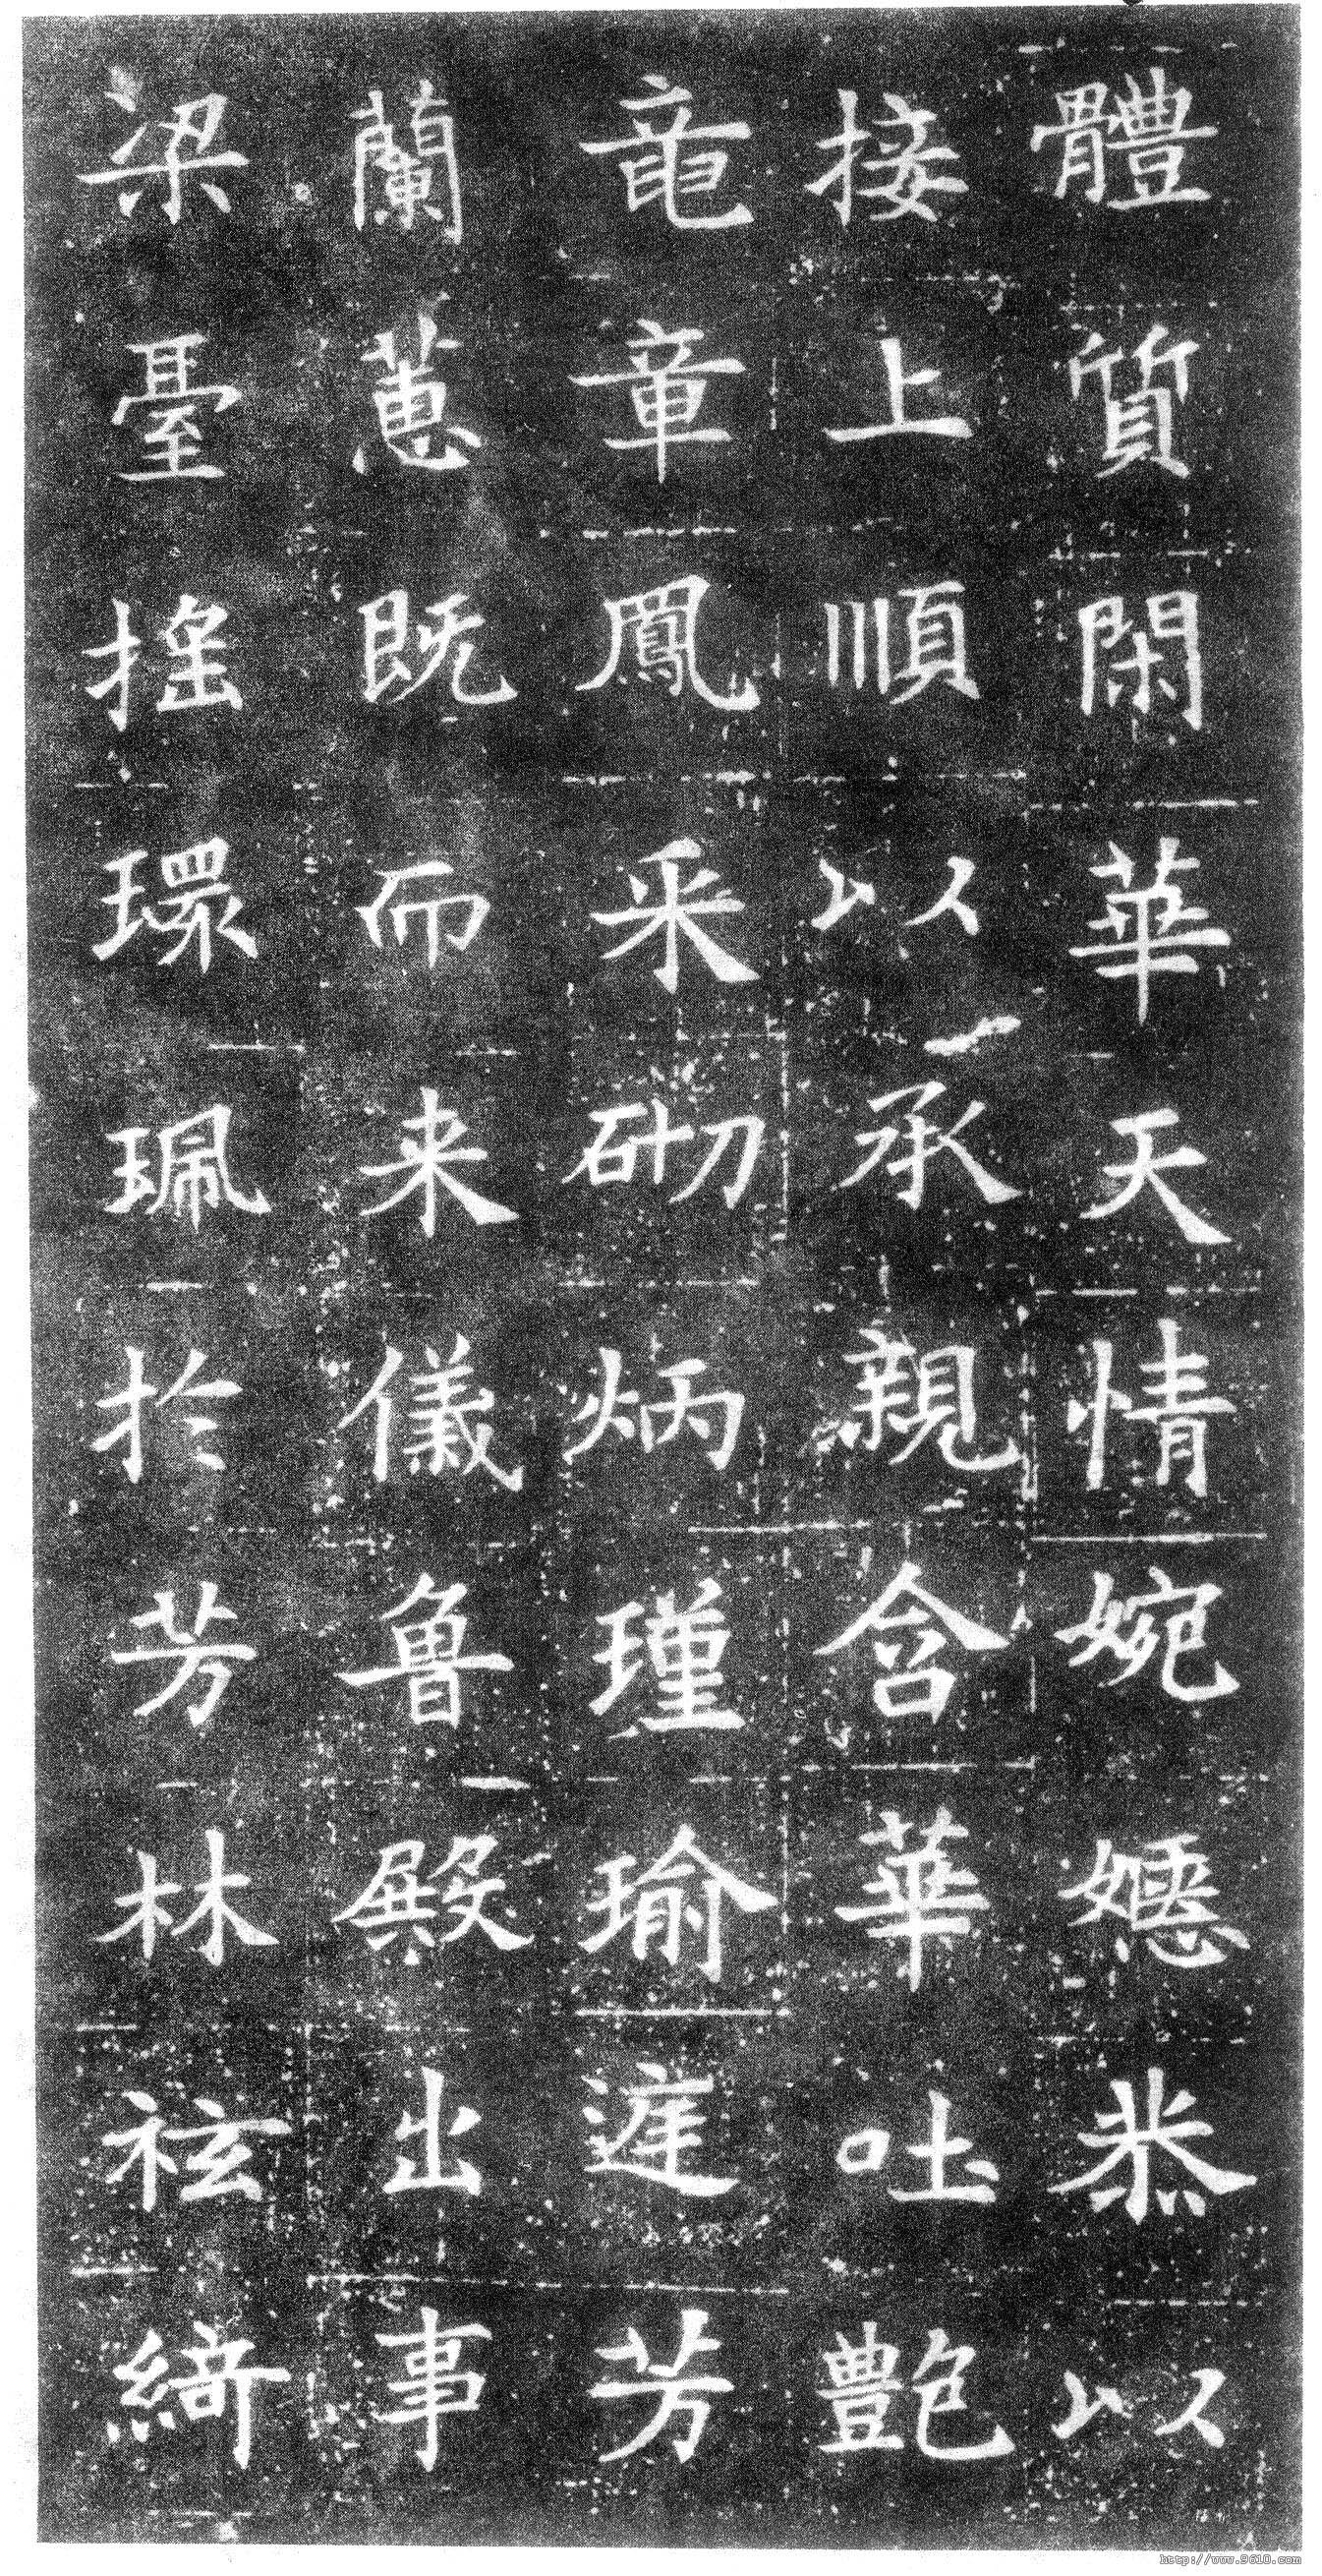 體質閑華天情婉嫕恭以
接上順以承親含華吐艶
竜章鳳采砌炳瑾瑜庭芳
蘭蕙既而来儀魯殿出事
梁臺搖環珮於芳林袨綺
http://www.9610.com